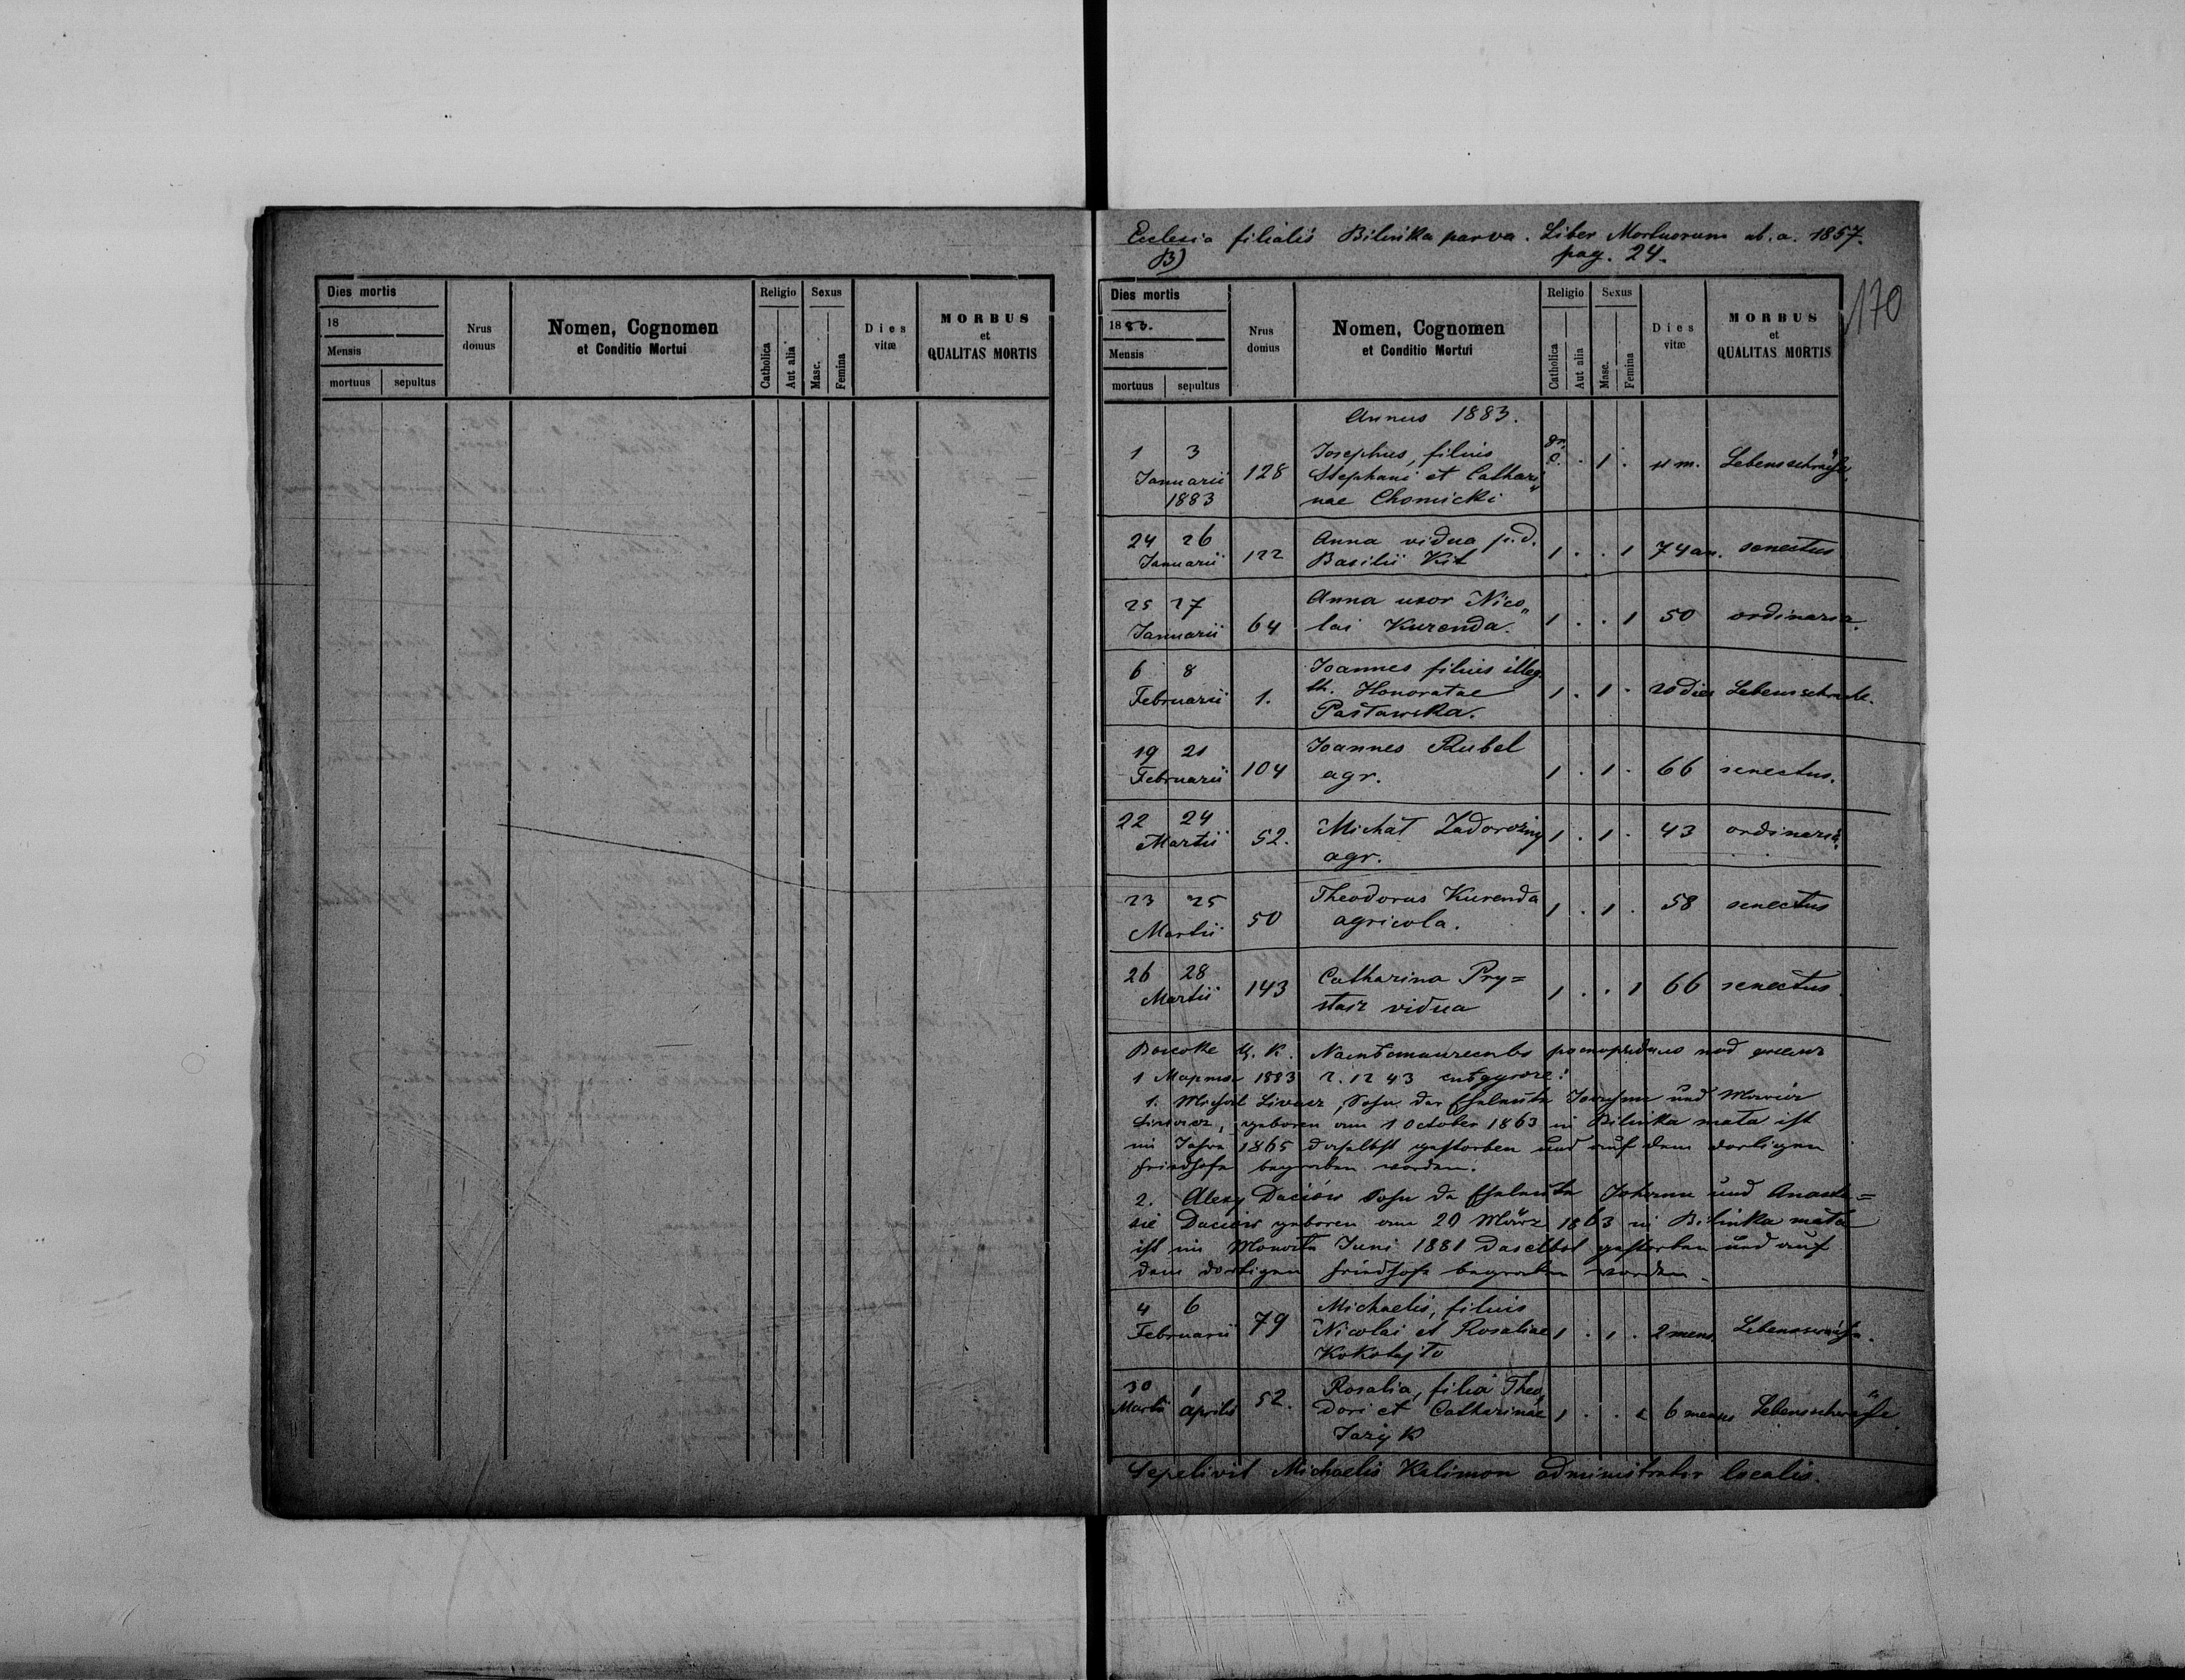 Ecclesia filialis Bilinka parva. Liber Mortuorum ab. a. 1857.
B) pag. 24.
170
Dies mortis
18
Mensis
mortuus sepultus
Nrus domus
Nomen, Cognomen
et Conditio Mortui
Religio
Catholica
Aut alia
Sexus
Masc.
Femina
Dies vitæ
MORBUS
et
QUALITAS MORTIS
Dies mortis
1883.
Mensis
mortuus sepultus
Nrus domus
Nomen, Cognomen
et Conditio Mortui
Religio
Catholica
Aut alia
Sexus
Masc.
Femina
Dies vitæ
MORBUS
et
QUALITAS MORTIS
Annus 1883.
1 3 Josephus, filius gr.
Januarii 128 Stephani et Cathari„ c. . 1 . 11 m. Lebensschwäche
1883 nae Chomicki
24 26 Anna vidua p.d.
Januarii 122 Basilii Kit 1 . . 1 74 an. senectus
25 27 Anna uxor Nico„
Januarii 64 lai Kurenda. 1 . . 1 50 ordinaria.
6 8 Joannes filius illeg.
Februarii 1. th. Honoratae 1 . 1 . 20 dies Lebensschwäche.
Pasławska.
19 21 Joannes Rubel
Februarii 104 agr. 1 . 1 . 66 senectus.
22 24 Michał Zadorożny
Martii 52. agr. 1 . 1 . 43 ordinaria.
23 25 Theodorus Kurenda
Martii 50 agricola. 1 . 1 . 58 senectus
26 28 Catharina Pry=
Martii 143 stasz vidua 1 . . 1 66 senectus.
1883
1. Sohn der Eheleute und
geboren am 1 October 1863 in Bilinka mała ist
im Jahre 1865 daselbst gestorben und auf dem dortigen
Friedhofe begraben worden.
2. Alexy Daciów Sohn der Eheleute Johann und Anasta=
sie Daciów geboren am 20 März 1863 in Bilinka mała
ist im Monate Juni 1881 daselbst gestorben und auf
dem dortigen Friedhofe begraben worden.
4 6 Michaelis, filius
Februarii 79 Nicolai et Rosaliae 1 . 1 . 2 mens.
Kokotajło
30 1 Rosalia, filia Theo„
Martii Aprilis 52. dori et Catharinae 1 . . 1 6 menses Lebensschwäche
Jazyk
Sepelivit Michaelis Kalimon administrator localis.